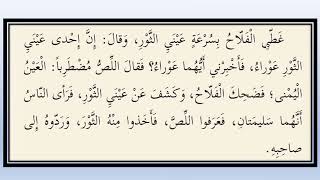 غَطَّى الْفَلَّاحُ بِسُرْعَةٍ عَيْنَيِ الثَّوْرِ، وَقالَ: إِنَّ إِحْدى عَيْنَيِ
الثَّوْرِ عَوْراءُ، فَأَخْبِرْنِي أَيُّهُما عَوْراءُ؟ فَقالَ اللِّصُّ مُضْطَرِباً: الْعَيْنُ
الْيُمْنى؛ فَضَحِكَ الْفَلَّاحُ، وَكَشَفَ عَنْ عَيْنَيِ الثَّوْرِ، فَرَأى النّاسُ
أَنَّهُما سَليمَتانِ، فَعَرَفُوا اللِّصَّ، فَأَخَذُوا مِنْهُ الثَّوْرَ، وَرَدُّوهُ إِلى
صاحِبِهِ.